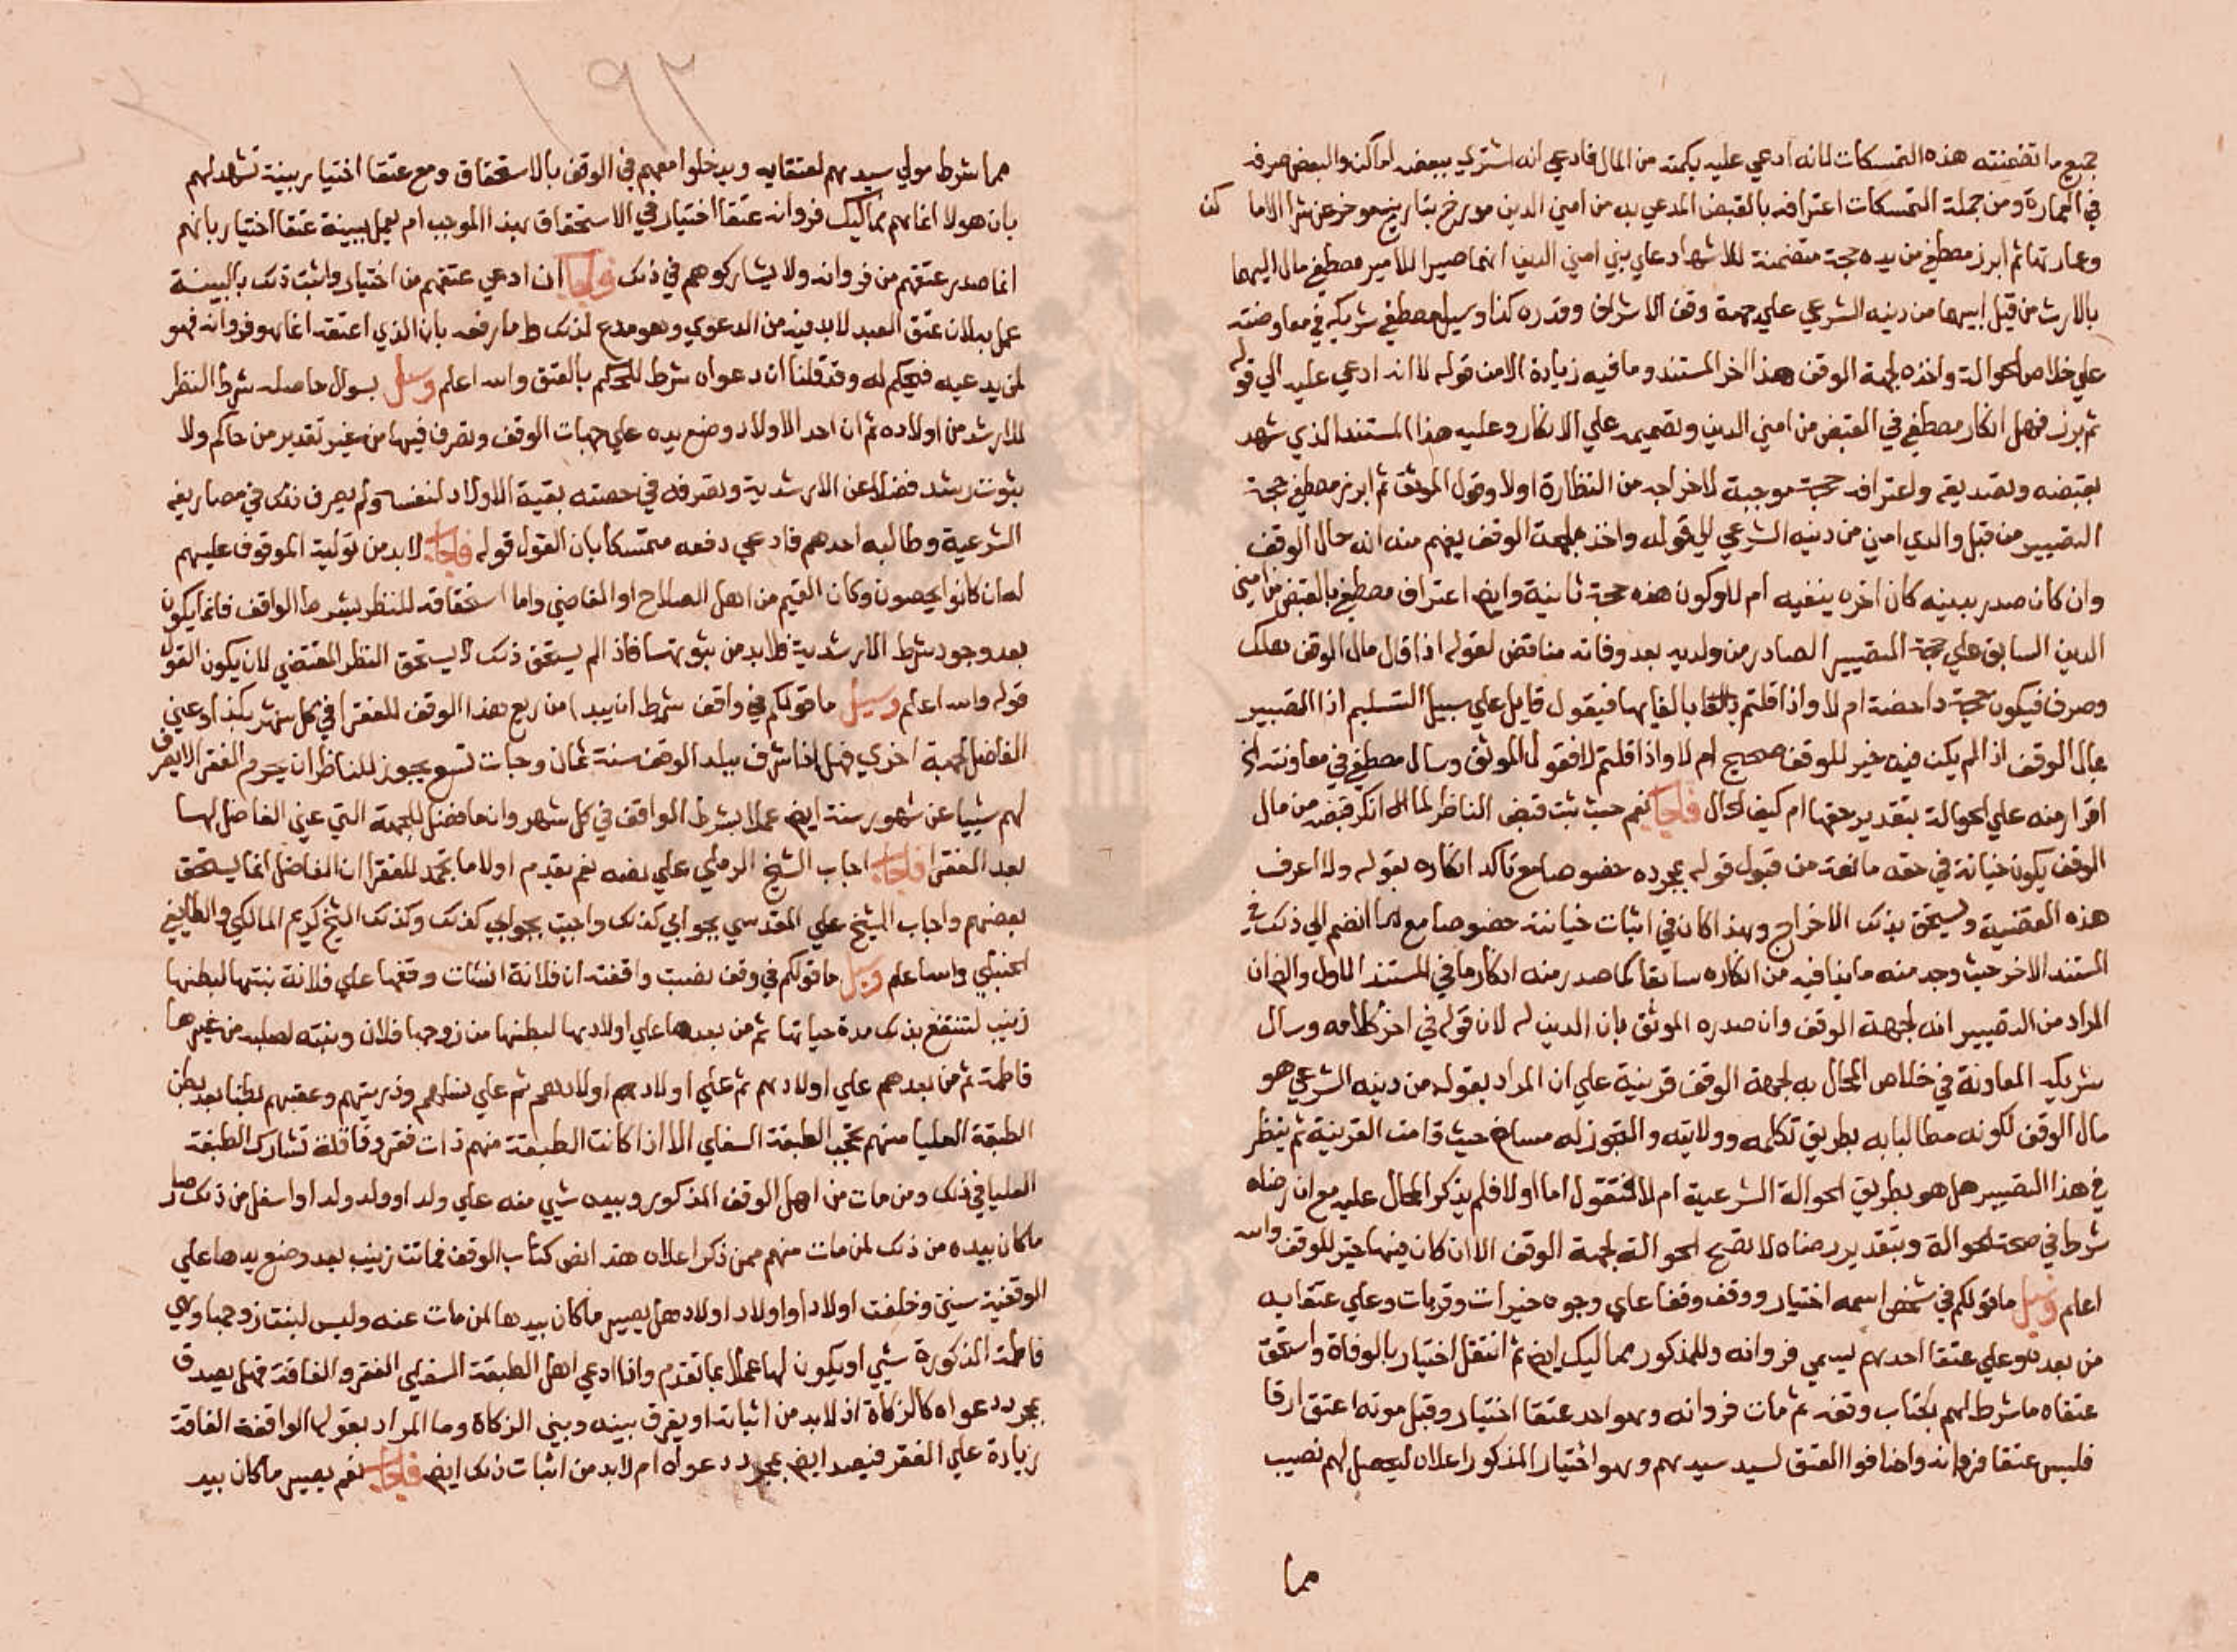 جميع ما تضمنته هذه التمسكات لمانه ادعي عليه بكمية من المال فادعي انه اشتري ببعضه اماكن والبعض صرفه
في العمارة ومن جملة التمسكات اعترافه بالقبض المدعي به من امين الدين مورخ بتاريخ موخر عن شرا الاماكن
وعمارتها ثم ابرز مصطفي من يده حجة متضمنة للاشهاد علي بني امين الدين انهما صيرا للامير مصطفي مال اليهما
بالارث من قبل ابيهما من دينه الشرعي علي جهة وقف الاشراف وقدره كذا وسيل مصطفي شريكه في معاوضته
علي خلاص الحوالة واخذه لجهة الوقف هذا اخر المستند وما فيه زيادة الامن قوله لاانه ادعي عليه الي قوله
ثم برز فهل انكار مصطفي في القبض من امين الدين وتصميمه علي الانكار وعليه هذا المستند الذي شهد
بقبضه وتصديقه واعترافه حجة موجبة لاخراجه من النظارة اولا وقول الموثق ثم ابرز مصطفي حجة
التصيير من قبل والدي امين من دينه الشرعي الي قوله واخذ لجهة الوقف يفهم منه انه حال الوقف
وان كان صدر بدينه كان اخره ينفيه ام لا وكون هذه حجة ثانية وايض اعتراف مصطفي بالقبض من امين
الدين السابق علي حجة التصيير الصادر من ولديه بعد وفاته مناقض لقوله اذا قال مال الوقف بملك
وصرف فيكون حجة داحضة ام لا واذا قلتم بالغايها فيقول قايل علي سبيل التسليم اذا التصيير
بمال الوقف اذا لم يكن فيه خير للوقف صحيح ام لا واذا قلتم لا فقول الموثق وسال مصطفي في معاونته الخ
اقرار منه علي الحوالة بتقدير حقها ام كيف الحال فاجاب نعم حيث ثبت قبض الناظر لمال انكر قبضه من مال
الوقف يكون خيانة في حقه مانعة من قبول قوله بمجرده خصوصا مع تاكد انكاره بقوله ولا اعرف
هذه القضية ويستحق بذلك الاخراج وبهذا كان في اثبات خيانته خصوصا مع ما انضم الي ذلك في
المستند الاخر حيث وجد منه ما ينافيه من انكاره سابقا كما صدر منه انكار ما في المستند الاول والضران
المراد من التصيير انه لجهة الوقف وان صدره الموثق بان الدين له لان قوله في اخر كلامه وسال
شريكه المعاونة في خلاص المحال به لجهة الوقف قرينة علي ان المراد بقوله من دينه الشرعي هو
مال الوقف لكونه مطالبا به بطريق تكلمه وولايته والتجوز له مساغ حيث قامت القرينة ثم ينظر
في هذا التصيير هل هو بطريق الحوالة الشرعية ام لا فنقول اما اولا فلم يذكر المحال عليه مع ان رضاه
شرط في صحة الحوالة وبتقدير رضاه لا تصح الحوالة لجهة الوقف الا ان كان فيها خير للوقف والله
اعلم وسيل ما قولكم في شخص اسمه اختيار ووقف وقفا علي وجوه خيرات وقربات وعلي عتقايه
من بعده وعلي عتقا احدهم ليسمي فروانه وللمذكور مماليك ايض ثم انتقل اختيار بالوفاة واستحق
عتقاه ما شرط لهم بكتاب وقفه ثم مات فروانه وهو احد عتقا اختيار وقبل موته اعتق ارقا
فلبس عتقا فروانه واضافوا العتق لسيد سيدهم وهو اختيار المذكور اعلاه ليحصل لهم نصيب
مما
١٩٢
مما شرط مولي سيدهم لعتقايه ويدخلوا معهم في الوقف بالاستحقاق ومع عتقا اختيار بينة تشهد لهم
بان هولا انما هم مماليك فروانه عتقا اختيار في الاستحقاق بهذا الموجب ام يعمل ببينة عتقا اختيار بانهم
انما صدر عتقهم من فروانه ولا يشاركوهم في ذلك فاجاب ان ادعي عتقهم من اختيار واثبت ذلك بالبينة
عمل بها لان عتق العبد لا بد فيه من الدعوي وهو مدع لذلك ما رفعه بان الذي اعتقه انما هو فروانه فهو
لمن يدعيه فيحكم له وقد قلنا ان دعواه شرط للحكم بالعتق والله اعلم وسيل بسوال حاصله شرط النظر
للارشد من اولاده ثم ان احد الاولاد وضع يده علي جهات الوقف وتصرف فيها من غير تقدير من حاكم ولا
بثبوت رشد فضلا عن الارشدية وتصرفه في حصته بقية الاولاد لنفسه ولم يصرف ذلك في مصاريفه
الشرعية وطالبه احدهم فادعي دفعه متمسكا بان القول قوله فاجاب لا بد من تولية الموقوف عليهم
له ان كانوا يحصون وكان القيم من اهل الصلاح او القاضي واما استحقاقه للنظر بشرط الواقف فانما يكون
بعد وجود شرط الارشدية فلا بد من ثبوتها فاذا لم يستحق ذلك لا يستحق النظر المقتضي لان يكون القول
قوله والله اعلم وسيل ما قولكم في واقف شرط ان يبدا من ريع هذا الوقف للفقرا في كل شهر بكذا وعين
الفاضل لجهة اخري فهل اذا شرف ببلد الوقف سنة ثمان وجات تسع يجوز للناظر ان يحرم الفقرا لا يصرف
لهم شييا عن شهور سنة ايض عملا بشرط الواقف في كل شهر وانما فضل للجهة التي عين الفاضل لها
بعد الفقرا فاجاب اجاب الشيخ الرملي علي نصه نعم يقدم اولا ما تجمد للفقرا ان الفاضل انما يستحق
بعضهم واجاب الشيخ علي المقدسي بجوابي كذلك واجبت بجوابي كذلك وكذلك الشيخ كريم المالكي والطايفي
الحنبلي والله اعلم وسيل ما قولكم في وقف نصيب واقفته ان فلانة انشات وقفها علي فلانة بنتها لبطنها
زينب لتنتفع بذلك مدة حياتها ثم من بعدها علي اولادها لبطنها من زوجها فلان وبنته لصلبه من غيرها
فاطمة ثم من بعدهم علي اولادهم ثم علي اولاد اولادهم ثم علي نسلهم وذريتهم وعقبهم بطنا بعد بطن
الطبقة العليا منهم تحجب الطبقة السفلي الا اذا كانت الطبقة منهم ذات فقر وفاقة تشارك الطبقة
العليا في ذلك ومن مات من اهل الوقف المذكور وبيده شيي منه علي ولد او ولد ولد او اسفل من ذلك صار
ما كان بيده من ذلك لمن مات منهم ممن ذكر اعلاه هذا نص كتاب الوقف فماتت زينب بعد وضع يدها علي
الوقفية سنين وخلفت اولادا واولاد اولاد هل يصير ما كان بيدها لمن مات عنه وليس لبنت زوجها وهي
فاطمة المذكورة شيي او يكون لها عملا بما تقدم واذا ادعي اهل الطبقة السفلي الفقر والفاقة فهل يصدق
بمجرد دعواه كالزكاة اذ لا بد من اثباته او يفرق بينه وبين الزكاة وما المراد بقول الواقفة الفاقة
زيادة علي الفقر فيصد ايض بمجرد دعواه ام لابد من اثبات ذلك ايض فاجاب نعم يصير ما كان بيد